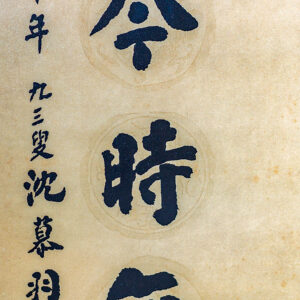 今時
年 九三叟沈慕羽